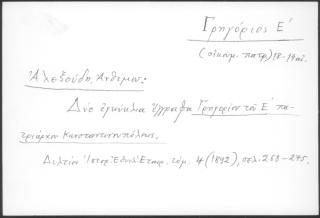 Γρηγόριος Ε΄
(οἰκουμ. πατρ) 18-19 αἰ.
Ἀλεξούδη, Ἀνθίμου:
Δύο ἐγκύκλια ἔγγραφα Γρηγορίου τοῦ Ε΄ πα-
τριάρχου Κωνσταντινουπόλεως.
Δελτίον Ἱστορ. Ἐθνολ. Ἑταιρ. τόμ. 4 (1892), σελ. 268-275.